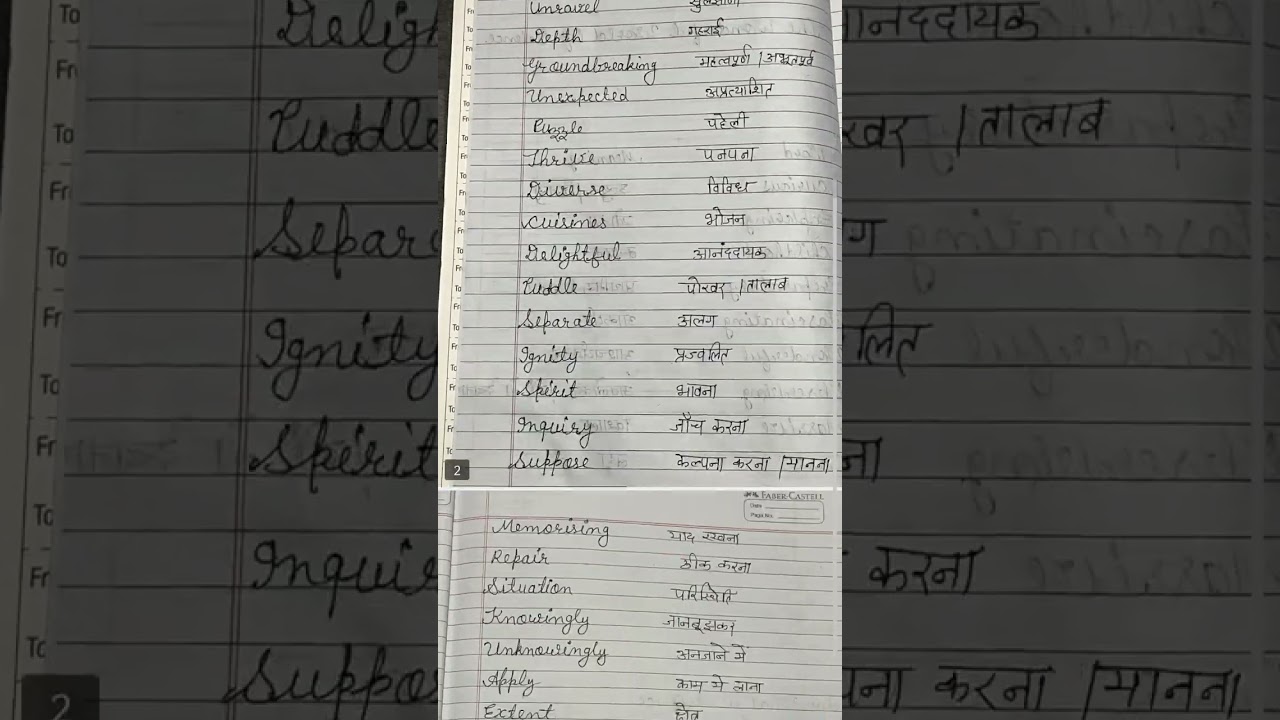 Unravel सुलझाना
Depth गहराई
Groundbreaking महत्वपूर्ण / अभूतपूर्व
Unexpected अप्रत्याशित
Puzzle पहेली
Thrive पनपना
Diverse विविध
Cuisines भोजन
Delightful आनंददायक
Puddle पोखर / तालाब
Separate अलग
Ignity प्रज्वलित
Spirit भावना
Inquiry जाँच करना
Suppose कल्पना करना / मानना
2
FABER-CASTELL
Date
Page No.
Memorising याद रखना
Repair ठीक करना
Situation परिस्थिति
Knowingly जानबूझकर
Unknowingly अनजाने में
Apply काम में लाना
Extent क्षेत्र